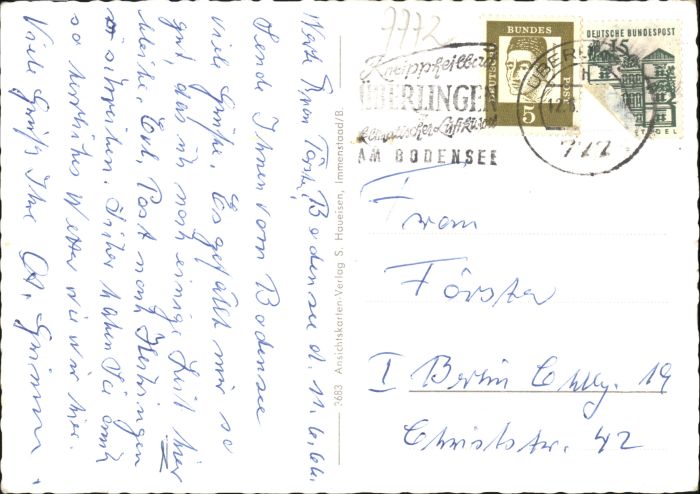 7772
Kneippheilbad
ÜBERLINGEN
klimatischer Luftkurort
AM BODENSEE
ÜBERLI
12.6.
777
BUNDES
DEUTSCHE
POST
5
DEUTSCHE BUNDESPOST
15
TEGEL
Frau
Förster
I Berlin Chlbg. 19
Christstr. 42
3683 Ansichtskarten-Verlag S. Haueisen, Immenstaad/B.
Bodensee d. 11.6.66.
Werte Frau Förster,
Sende Ihnen vom Bodensee
viele Grüße. Es gefällt mir so
gut, das ich noch einige Zeit hier
bleibe. Evtl. Post nach
schreiben. Sie auch
so herrliches Wetter wie wir hier.
Viele Grüße Ihre